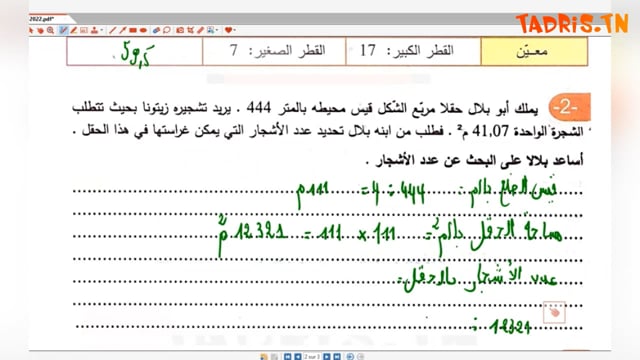 2022.pdf*
TADRIS.TN
معيّن القطر الكبير: 17 القطر الصغير: 7 59,5
-2- يملك أبو بلال حقلا مربّع الشّكل قيس محيطه بالمتر 444 . يريد تشجيره زيتونا بحيث تتطلب
الشجرة الواحدة 41,07 م² . فطلب من ابنه بلال تحديد عدد الأشجار التي يمكن غراستها في هذا الحقل .
أساعد بلالا على البحث عن عدد الأشجار .
قيس الضلع بالم = 444 : 4 = 111 م
مساحة الحقل بالم² = 111 × 111 = 12321 م²
عدد الأشجار بالحقل =
12321 :
2 sur 3